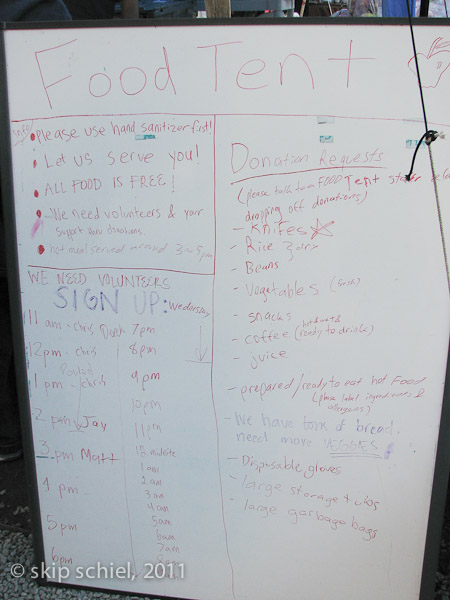 Food Tent
info
Please use hand sanitizer first!
Let us serve you!
ALL FOOD IS FREE!
We need volunteers & your
support
hot meal served around 3-5pm
WE NEED VOLUNTEERS
SIGN UP: Wednesday
11 am - chris 7pm
12pm - chris 8pm
1 pm - chris 9pm
10pm
2 pm Jay 11pm
3 pm Matt 12 midnite
1am
2am
4 pm 3am
4am
5pm 5am
6am
7am
6pm
Donation Requests
(please talk to a FOOD Tent
dropping off donations)
- KNifes
- Rice
- Beans
- Vegetables (fresh)
- snacks
- coffee (hot & ready to drink)
- juice
- prepared/ready to eat hot Food
(please label ingredients &
allergens)
- We have tons of bread,
need more VEGGIES
- Disposable gloves
- large storage
- large garbage bags
© skip schiel, 2011